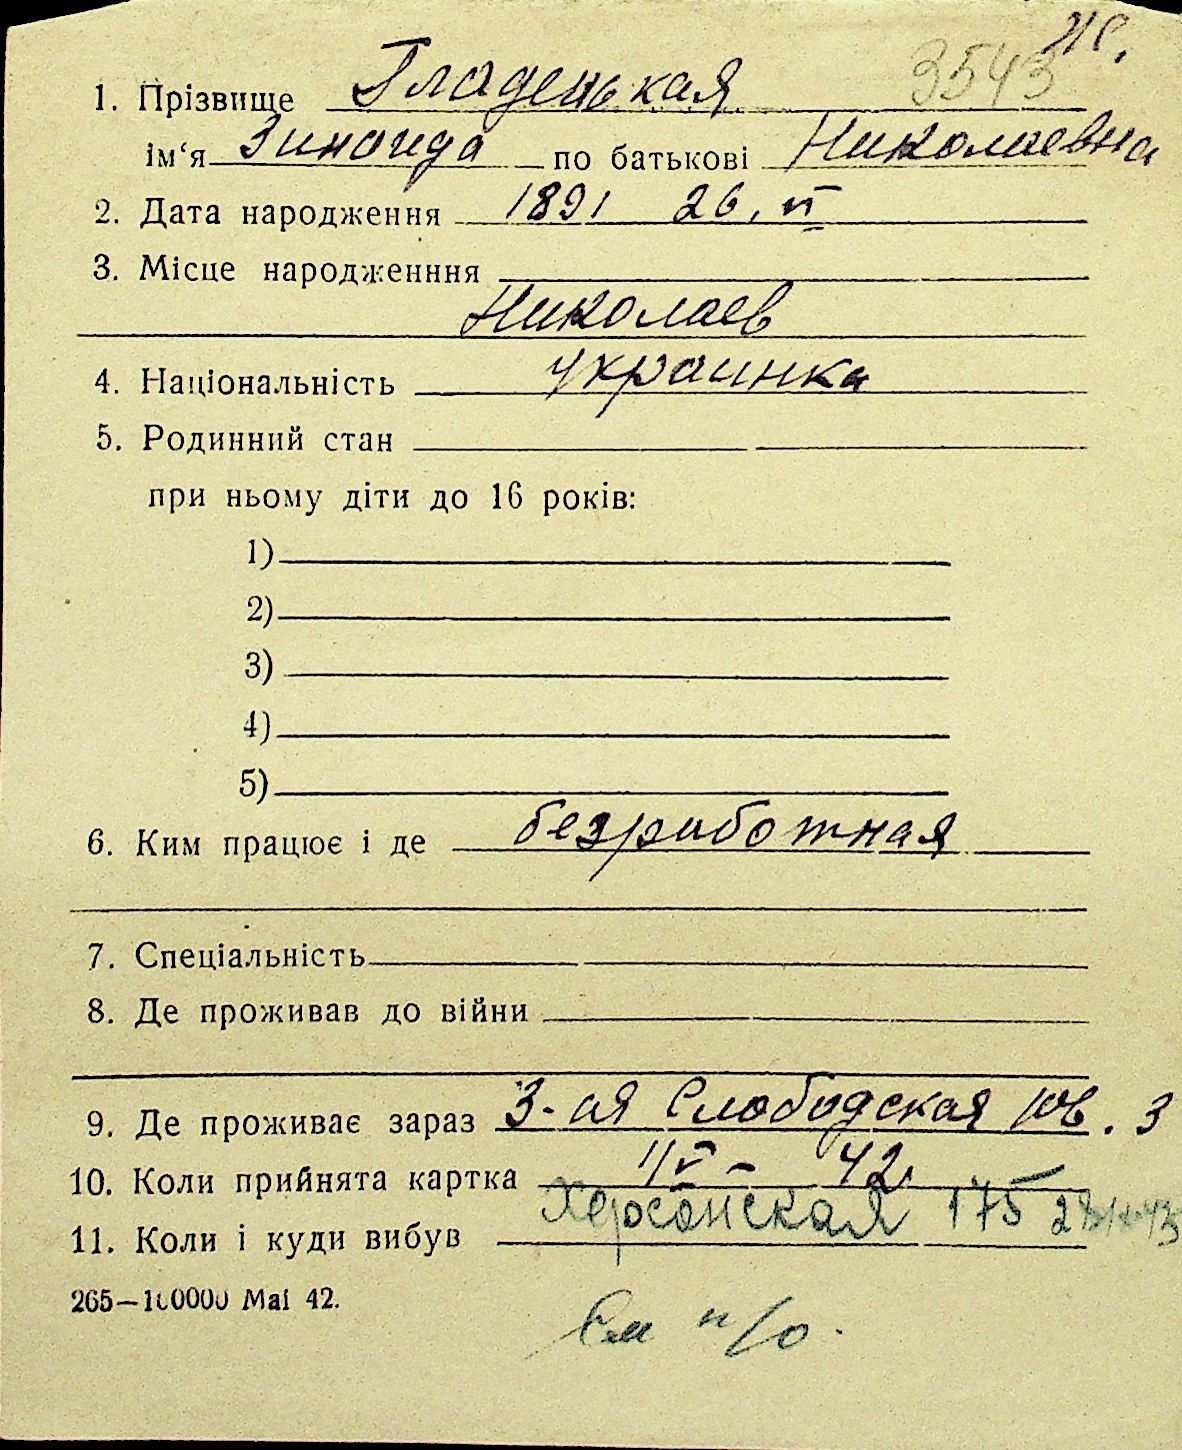 3543
1. Прізвище Гладенькая
ім‘я Зинаида по батькові Николаевна
2. Дата народження 1891 26. VI
3. Місце народженння
Николаев
4. Національність украинка
5. Родинний стан
при ньому діти до 16 років:
1)
2)
3)
4)
5)
6. Ким працює і де безработная
7. Спеціальність
8. Де проживав до війни
9. Де проживає зараз 3-ая Слободская 3
10. Коли прийнята картка 42
Херсонская 175
11. Коли і куди вибув
265—100000 Mai 42.
См н/о.